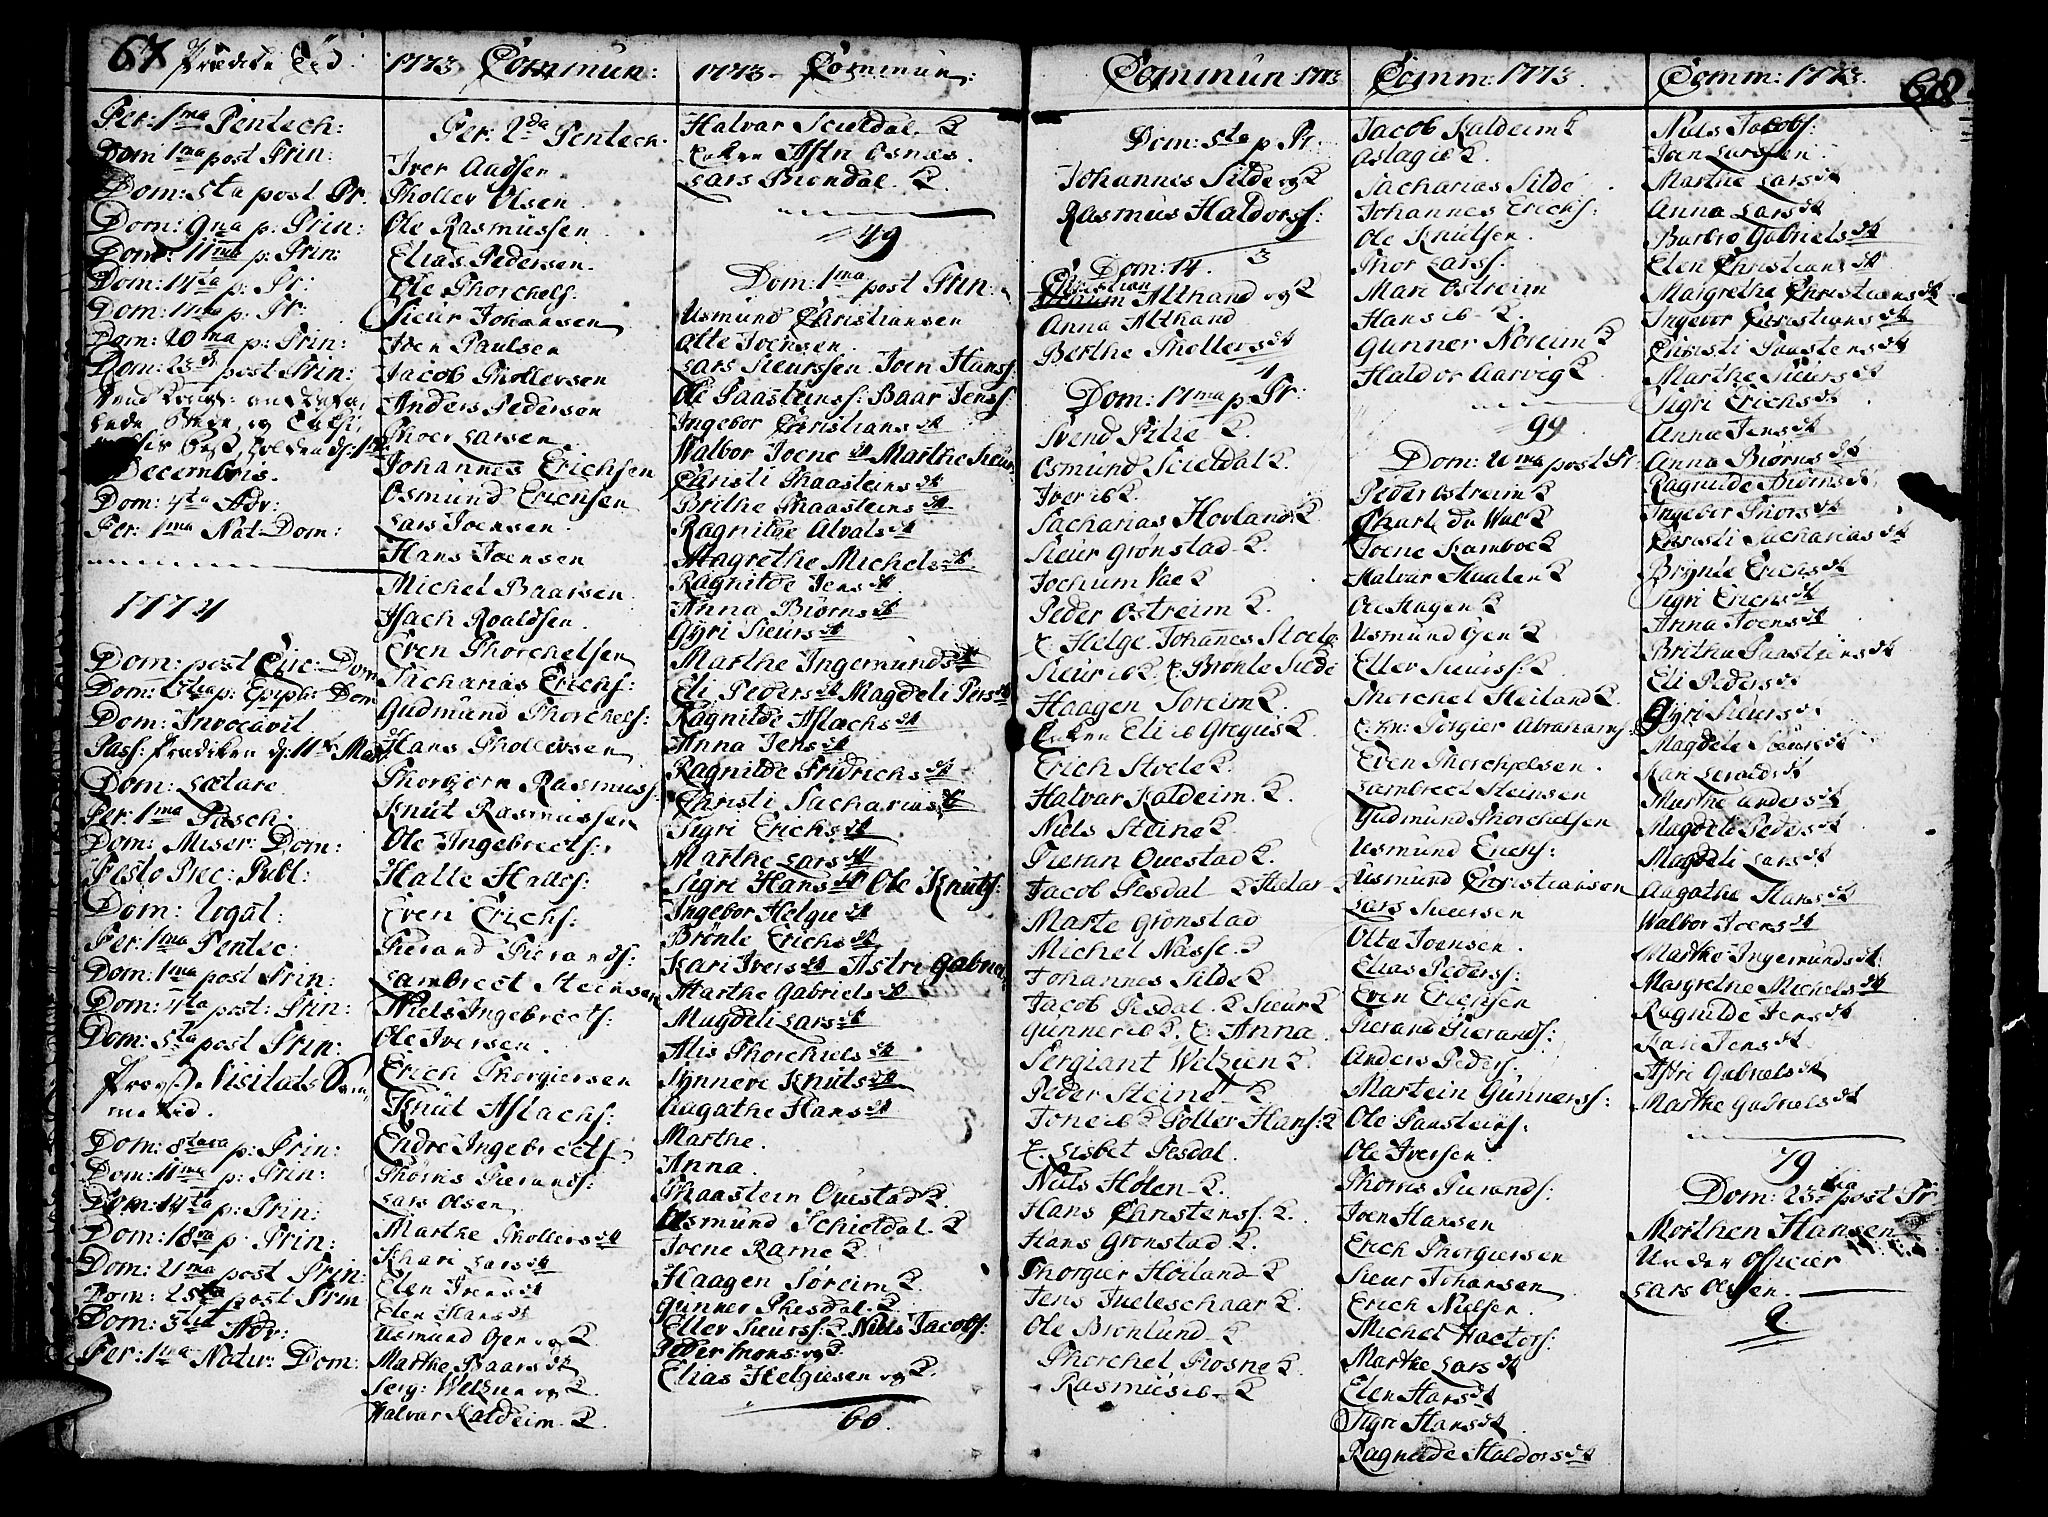 67 Prædike Tid.
Fer: 1ma Pentech:
Dom 1ma post Trin:
Dom: 5ta post Tr.
Dom: 9na p: Trin:
Dom: 11ma p: Trin:
Dom: 14ta p: Tr:
Dom: 17ma p: Tr:
Dom: 20ma p: Trin:
Dom: 23de post Trin:
Decembris.
Dom: 4ta Adv:
Fer: 1ma Nat: Dom:
1774
Dom: post Circ: Dom
Dom: 3tia p: Epiph: Dom
Dom: Invocavit
Pass: Prædiken d: 11te Mart
Dom: Lætare
Fer: 1ma Pasch:
Dom: Miser: Dom:
Festo Prec: Publ:
Dom: Rogat:
Fer: 1ma Pentec:
Dom: 1ma post Trin:
Dom: 4ta post: Trin:
Dom: 5ta post Trin:
Visitats
Dom: 8tava p: Trin:
Dom: 11ma p: Trin:
Dom: 14ta p: Trin:
Dom: 18va p: Trin:
Dom: 21ma post Trin:
Dom: 25ta post Trin
Dom: 3tia Adv:
Fer: 1ma Nativ: Dom:
1773 Commun:
Fer: 2da Pentech.
Iver Audsen
Tholler Olsen
Ole Rasmussen
Elias Pedersen
Ole Thorchels:
Sieur Johansen
Iven Paulsen
Jacob Thollevsen
Anders Pedersen
Thoer Larsen
Johannes Erichsen
Osmund Erichsen
Lars Joensen
Hans Joensen
Michel Baarsen
Isach Roaldsen
Even Thorchelsen
Sacharias Erichs:
Gudmund Thorchels:
Hans Thollevsen
Thorbiørn Rasmuss:
Knut Rasmussen
Ole Ingebrects:
Halle Halles:
Even Erichs:
Sierand Sierands:
Lambrect Steinsen
Niels Ingebrects:
Ole Iversen
Erich Thorgiersen
Knut Aslachs:
Endre Ingebrects:
Thøris Sierands:
Lars Olsen
Marthe Thollers dt
Khari Lars dt
Elen Ivers dt
Elen Hans dt
Usmund Øen og K.
Marthe Baars dt
Serg: Welzien og K.
Halvar Kaldeim K
1773. Commun:
Halvar Scieldal K
Enken Astri Osnæs.
Lars Thondal K.
49
Dom: 1ma post Trin:
Usmund Christiansen
Olte Joensen
Lars Sieurssen Joen Hans:
Ole Paasteins: Baar Jens:
Ingebor Christians dt
Walbor Joene dt Marthe Sieur
Christi Thaasteins dt
Brithe Thaasteins dt
Ragnilde Alvals dt
Magrethe Michels dt
Ragnilde Jens dt
Anna Biørns dt
Gÿri Sieurs dt
Marthe Ingemunds dt
Eli Peders dt Magdeli Pers dt
Ragnilde Aslachs dt
Anna Jens dt
Ragnilde Fridrichs dt
Christi Sacharias dt
Sigri Erichs dt
Marthe Lars dt
Sigri Hans dt Ole Knuts:
Ingebor Helge dt
Brønle Erichs dt
Kari Ivers dt Astri Gabriels
Marthe Gabriels dt
Magdeli Lars dt
Alis Thorchiels dt
Synneve Knuts dt
Aagathe Hans dt
Marthe.
Anna.
Thaastein Qvestad K.
Osmund Schieldal K
Joene Rame K
Haagen Søreim K
Gunner Thesdal K
Eller Sieurss: K Niels Jacobs:
Peder Mons: og K
Elias Helgiesen og K.
60.
Commun: 1773
Dom: 5ta p. Tr:
Johannes Silde og K
Rasmus Haldorss:
3
Dom: 14.
Christian Althand og K
Anna Althand
Berthe Thollers dt
4
Dom: 17ma p: Tr:
Svend Silje K.
Osmund Scieldal K.
Iver ib K.
Sacharias Hovland K
Sieur Grønstad K.
Jochum Vae K
Peder Ostreim K.
E. Helge Johannes Stoele
Sieur ib K. E. Brønle Silde
Haagen Soreim K.
Enken Eli ib Gregius K
Erich Stoele K.
Halvar Kaldeim K.
Niels Steine K
Sieran Qvestad K.
Jacob Pesdal K
Marte Gronstad
Michel Nasse K
Johannes Silde K
Jacob Pesdal K Sieur K
Gunner ib K. E. Anna
Sergiant Wilzien K
Peder Steine K
Tone ib K Toller Hans: K
E. Lisbet Pesdal.
Niels Hølen K.
Hans Christenss K.
Hans Gronstad K.
Thorgier Høiland K
Jens Jueleschaar K.
Ole Bronlund K
Thorchel Thosne K
Rasmus ib K
Comm: 1773.
Jacob Kaldeim K
Aslag ib K.
Sacharias Silde
Johannes Erichs:
Ole Knutsen.
Thor Larss.
Mari Ostreim
Hans ib K.
Gunner Noreim K
Haldor Aarvig K
99
Dom: 20ma post Tr:
Peder Ostreim K
Joene Kamboe K
Halvar Hualen K
Ole Hagen K
Usmund Øen K
Eller Sieurss: K
Thorchel Heiland K.
Even Thorchelsen
Lambrect Steinsen
Gudmund Thorchelsen
Usmund Erichs:
Usmund Christiansen
Lars Sieursen
Olte Joensen
Elias Peders:
Even Erichsen
Sierand Sierands:
Anders Peders.
Martein Gunnerss:
Ole Paasteins:
Ole Iversen
Thoris Sierands:
Joen Hansen
Erich Thorgiersen
Sieur Johansen
Erich Nielsen.
Michel Hactors:
Marthe Lars dt
Elen Hans dt
Sigri Hans dt
Ragnilde Haldors dt
Comm: 1773. 68
Niels Jacobs:
Joen Larssen
Marthe Lars dt
Anna Lars dt
Barbro Gabriels dt
Elen Christians dt
Margrethe Christians dt
Ingebor Christians dt
Christi Paasteins dt
Marthe Sieurs dt
Sigri Erichs dt
Anna Jens dt
Anna Biørns dt
Ragnilde Biørns dt
Ingebor Thors dt
Christi Sacharias dt
Brÿnle Erichs dt
Sigri Erichs dt
Anna Joens dt
Britha Paasteins dt
Eli Peders dt
Gÿri Sieurs dt
Magdeli Sieurs dt
Marthe Anders dt
Magdeli Peders dt
Magdeli Lars dt
Aagathe Hans dt
Walbor Joens dt
Marthe Ingemunds dt
Margrethe Michels dt
Ragnilde Jens dt
Kari Jens dt
Astri Gabriels dt
Marthe Gabriels dt
79
Dom: 23tia post Tr
Morthen Hansen
Under Officier
Lars Olsen.
2.